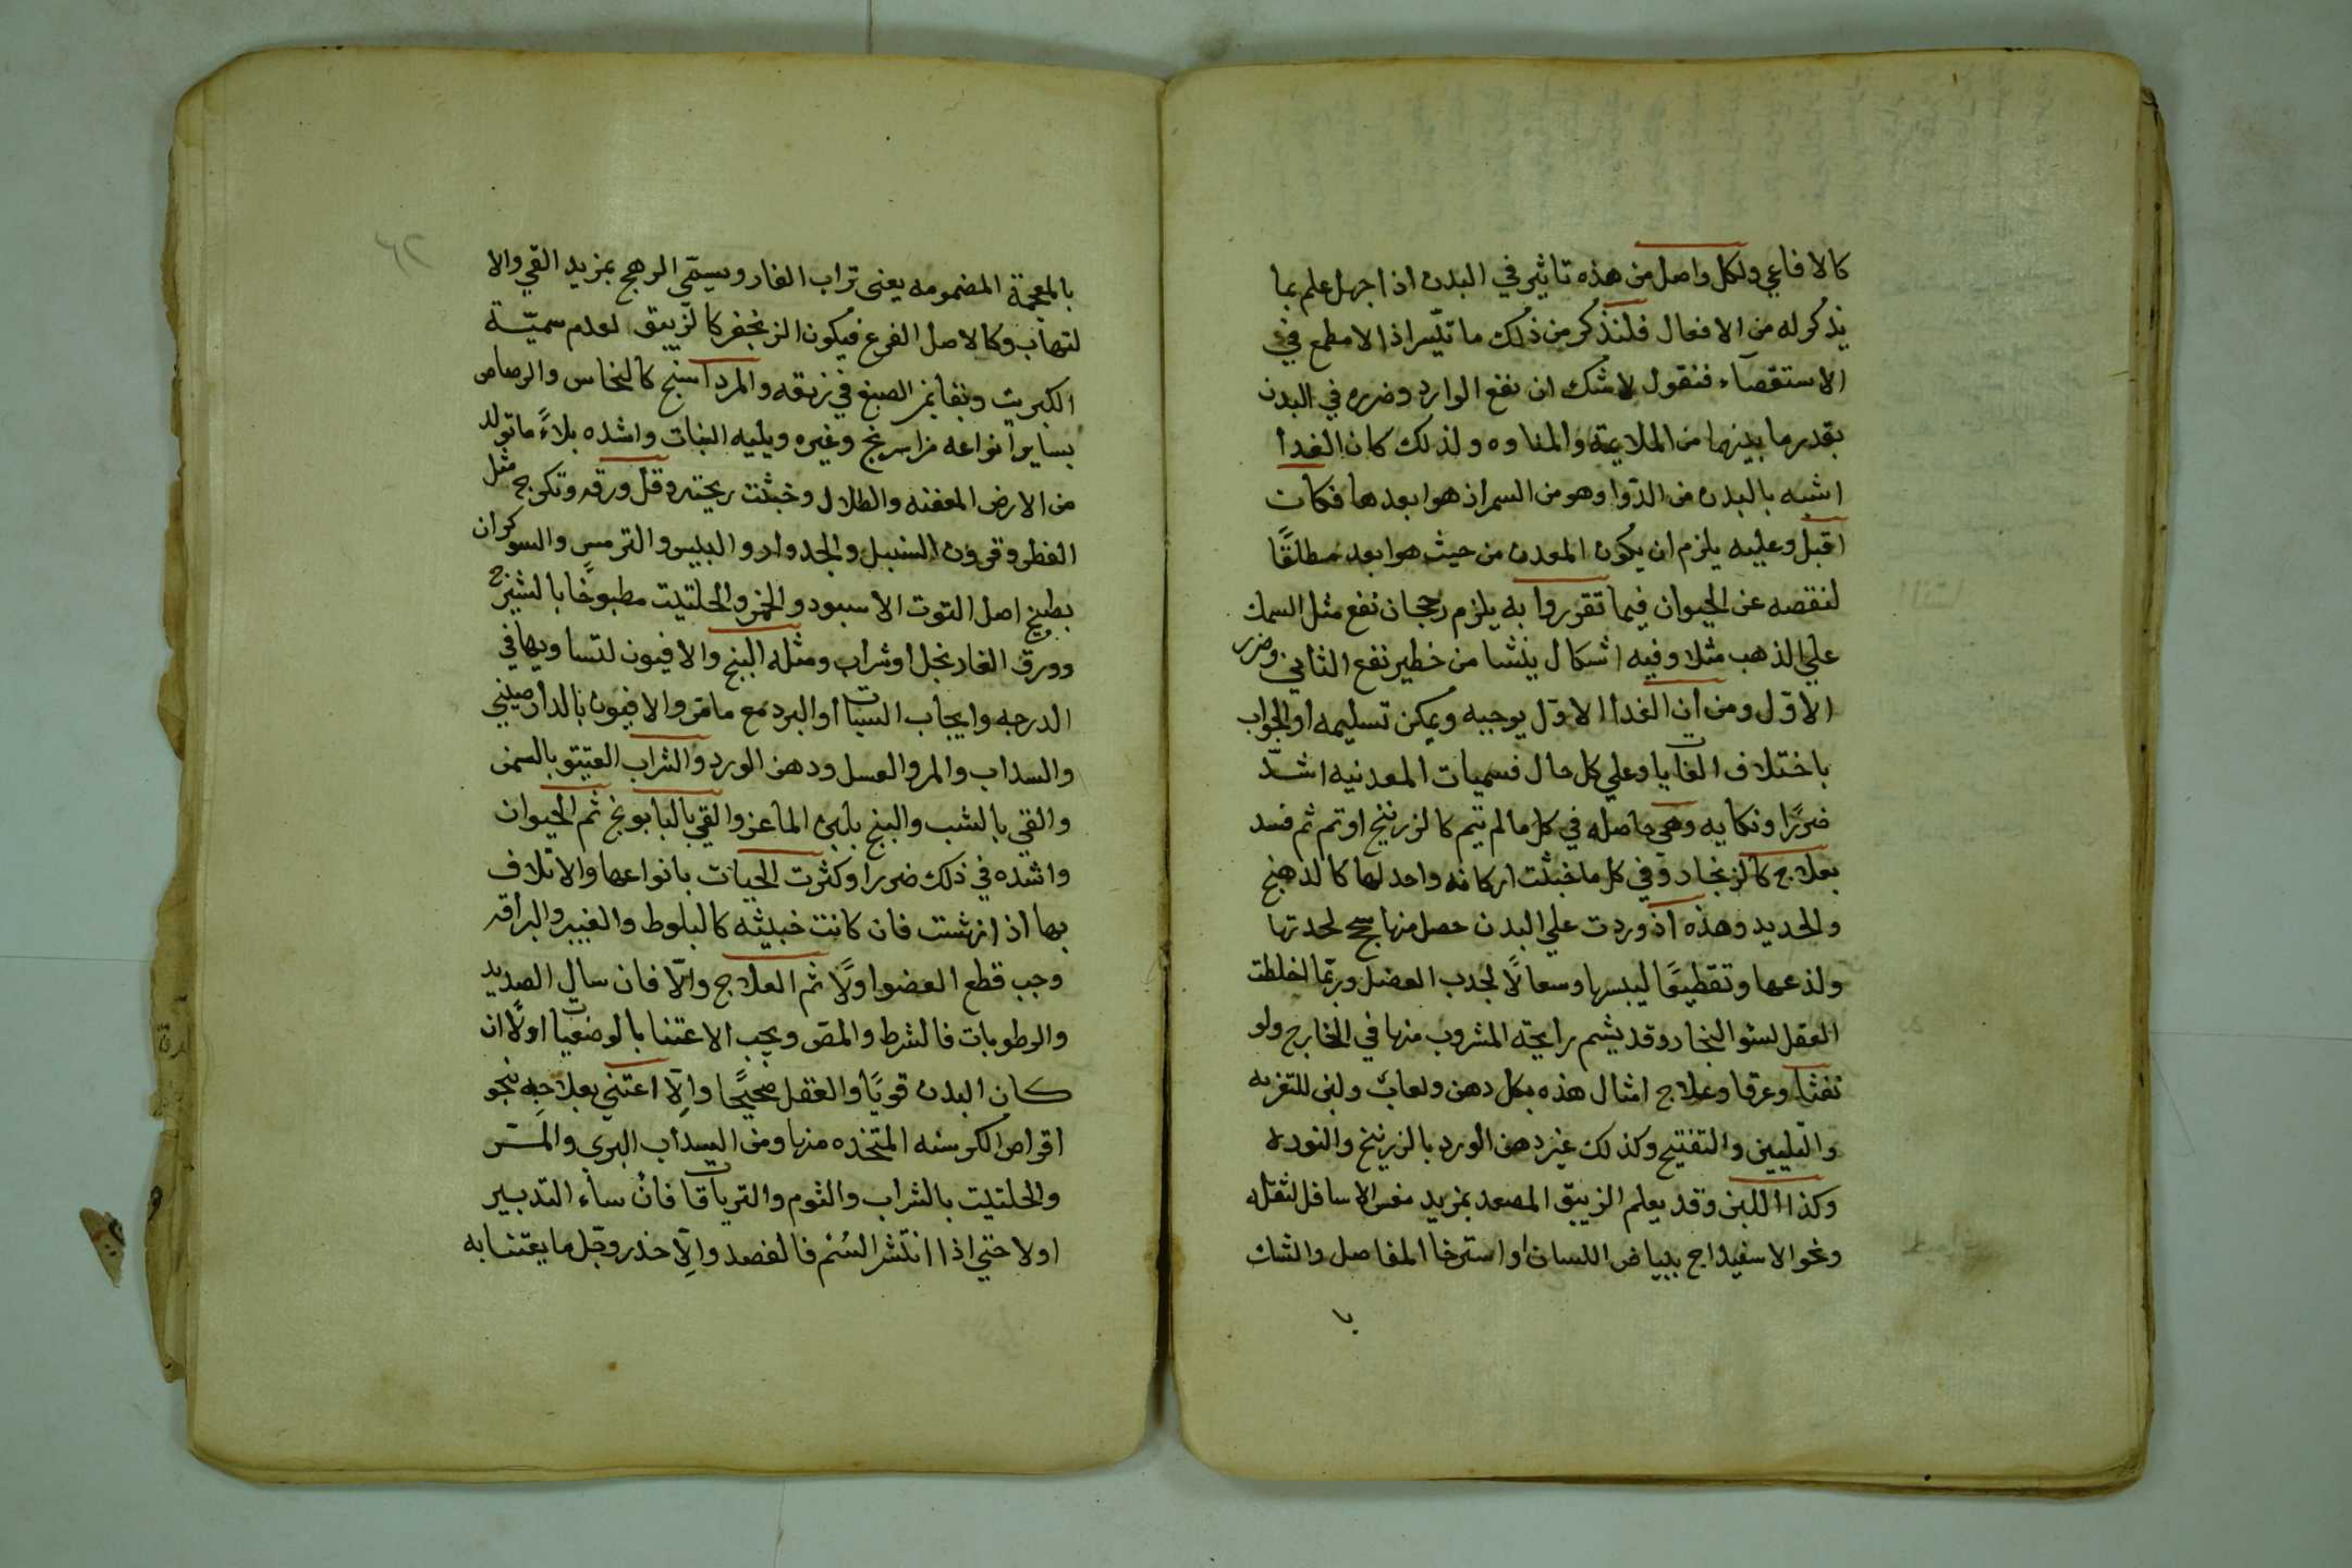 كالافاعي ولكل واصل من هذه تاثير في البدن اذا جهل علم بما
يذكر له من الافعال فلنذكر من ذلك ما تيسر اذ الامطمع في
الاستقصآء فنقول لاشك ان نفع الوارد وضرره في البدن
بقدر ما بينهما من الملايمة والمناوه ولذلك كان الغدا
اشبه بالبدن من الدوا وهو من السم اذ هو ابعدها فكان
اقبل وعليه يلزم ان يكون المعدن من حيث هو ابعد مطلقًا
لنقصه عن الحيوان فيما تقرر وا به يلزم رجحان نفع مثل السمك
علي الذهب مثلا وفيه اشكال ينشا من خطير نفع الثاني وضرر
الاول ومن ان الغدا الاول يوجبه ويمكن تسليمه او الجواب
باختلاف الغايات وعلي كل حال فسميات المعدنيه اشدّ
ضررًا ونكايه وهي حاصله في كل ما لم يتم كالزرنيخ او تم ثم فسد
بعلاج كالزنجار وفي كل ما خبثت اركانه واحد لها كالدهنج
والحديد وهذه اذ وردت علي البدن حصل منها سحج لحدتها
ولذعها وتقطيعًا ليبسها وسعالًا لجدب العضل وربّما اخلطت
العقل لسو البخار وقد يشم رايحة المشروب منها في الخارج ولو
نفثا وعرقا وعلاج امثال هذه بكل دهن ولعاب ولبن للتغريه
والتليين والتفتيح وكذلك غير دهن الورد بالزرنيخ والنوره
وكذا اللبن وقد يعلم الزيبق المصعد بمزيد مغس الاسافل لثقله
ونحو الاسفيداج ببياض اللسان او استرخا المفاصل والشك
با
٦٢
بالمعجمة المضمومه يعنى تراب الفار ويسمّي الرهج بمزيد القي والا
لتهاب وكالاصل الفرع فيكون الزنجفر كالزيبق لعدم سميّة
الكبريت وبقا نمر الصبغ في زيبقه والمرداسنج كالنحاس والرصاص
بساير انواعه من اسرنج وغيره ويليه النبات واشده بلاءً ما تولد
من الارض المعفنه والطلال وخبثت ريحته وقل ورقه وتكرج مثل
الفطر وقرون السنبل والجدوار والبليس والترمس والسوكران
بطبيخ اصل التوت الاسود والخمر والحلتيت مطبوخًا بالشيرج
وورق الغار بخل او شراب ومثله البنج والافيون لتساويها في
الدرجه وايجاب السبات او البرد مع ما مر والافيون بالدارصيني
والسداب والمر والعسل ودهن الورد والشراب العتيق بالسمن
والقي بالشب والبنج بلبن الماعز والقي بالبابونج ثم الحيوان
واشده في ذلك ضررا وكثرت الحيات بانواعها والاتلاف
بها اذا نهشت فان كانت خبيثه كالبلوط والغيبر والبراقه
وجب قطع العضو اولًا ثم العلاج والّا فان سال الصديد
والرطوبات فالشرط والمص ويجب الاعتنا بالوضعيات اولًا ان
كان البدن قويًا والعقل صحيحًا والّا اعتني بعلاجه بنحو
اقراص الكرسنه المتخذه منها ومن السداب البرى والمر
والحلتيت بالشراب والثوم والترياقات فان ساء التدبير
اولا حتي اذا انتشر السُم فالفصد والّا خذر وجّل ما يعتنا به